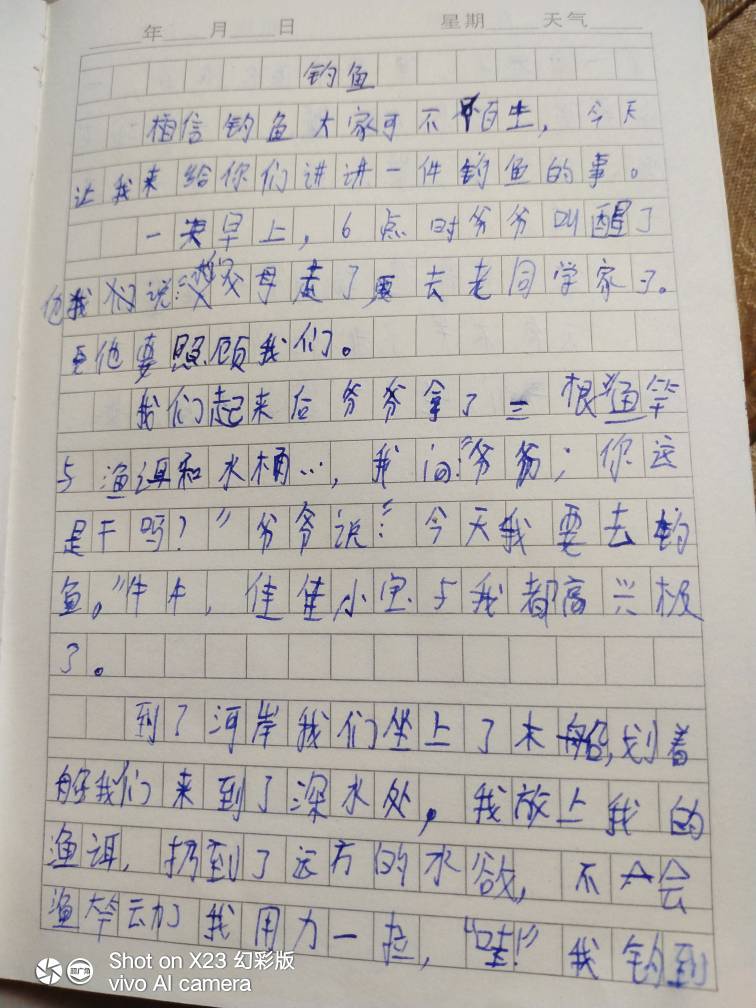 年 月 日 星期 天气
钓鱼
相信钓鱼大家可不陌生，今天
让我来给你们讲讲一件钓鱼的事。
一天早上，6点时爷爷叫醒了
我们说：“父母走了要去老同学家了。
他要照顾我们了。
我们起来后爷爷拿了三根渔竿
与渔洱和水桶…，我问：“爷爷；你这
是干吗？”爷爷说：“今天我要去钓
鱼。”牛牛，佳佳小宝与我都高兴极
了。
到了河岸我们坐上了木船，划着
船我们来到了深水处，我放上我的
渔洱，扔到了远方的水欲，不一会
渔竿动了我用力一拉，“哇！”我钓到
Shot on X23 幻彩版
vivo AI camera